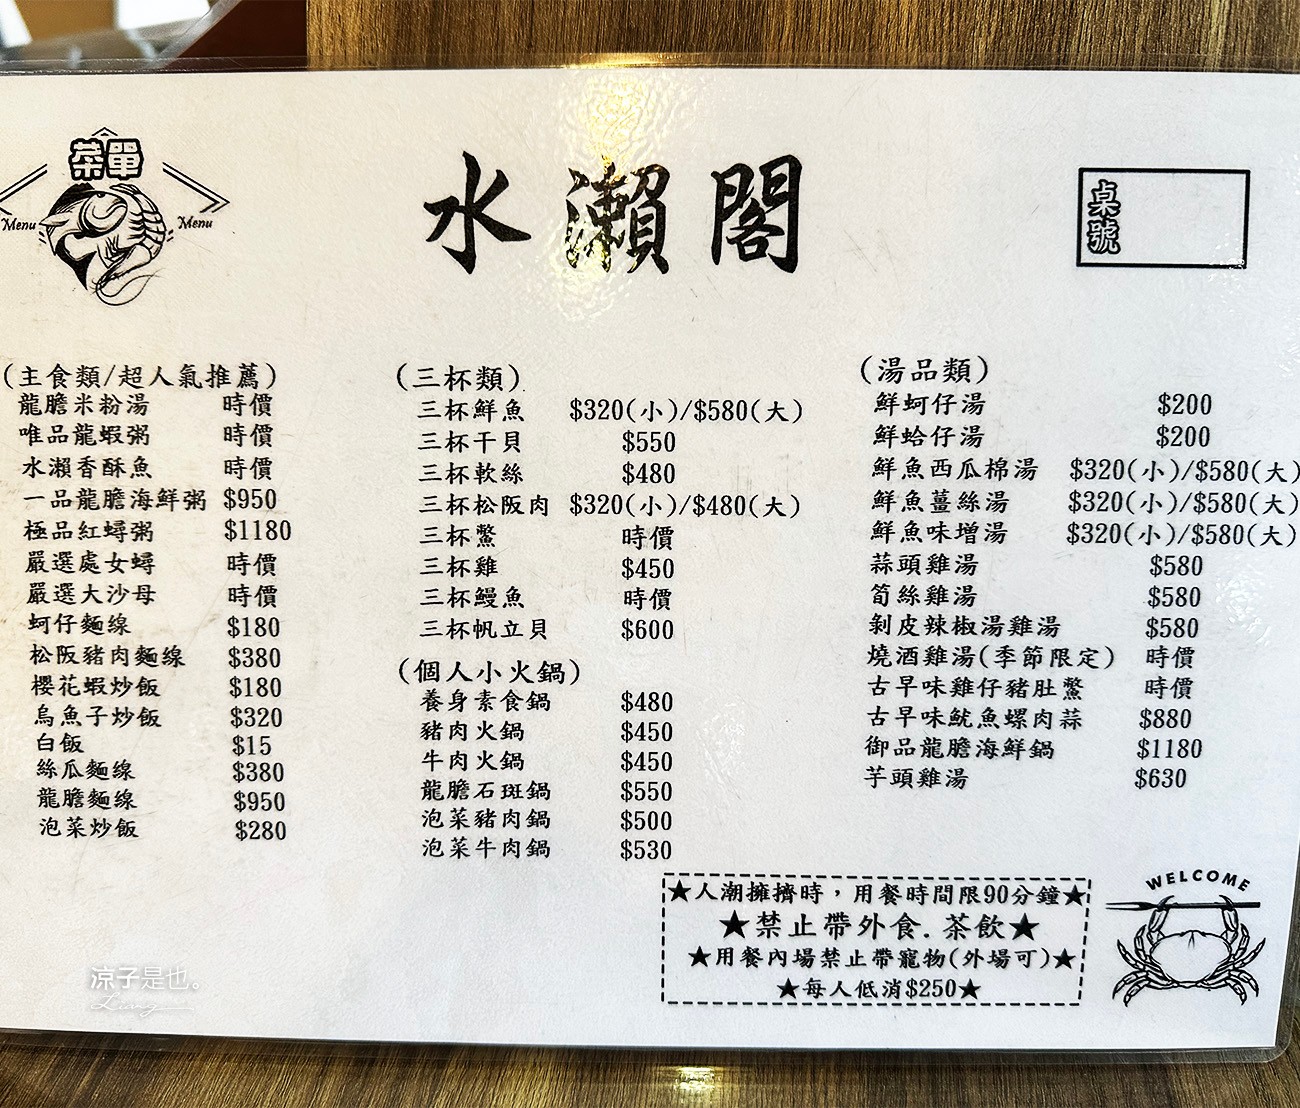 菜單
Menu
Menu
水瀨閣
桌號
(主食類/超人氣推薦)
龍膽米粉湯 時價
唯品龍蝦粥 時價
水瀨香酥魚 時價
一品龍膽海鮮粥 $950
極品紅蟳粥 $1180
嚴選處女蟳 時價
嚴選大沙母 時價
蚵仔麵線 $180
松阪豬肉麵線 $380
櫻花蝦炒飯 $180
烏魚子炒飯 $320
白飯 $15
絲瓜麵線 $380
龍膽麵線 $950
泡菜炒飯 $280
(三杯類)
三杯鮮魚 $320(小)/$580(大)
三杯干貝 $550
三杯軟絲 $480
三杯松阪肉 $320(小)/$480(大)
三杯鱉 時價
三杯雞 $450
三杯鰻魚 時價
三杯帆立貝 $600
(個人小火鍋)
養身素食鍋 $480
豬肉火鍋 $450
牛肉火鍋 $450
龍膽石斑鍋 $550
泡菜豬肉鍋 $500
泡菜牛肉鍋 $530
(湯品類)
鮮蚵仔湯 $200
鮮蛤仔湯 $200
鮮魚西瓜棉湯 $320(小)/$580(大)
鮮魚薑絲湯 $320(小)/$580(大)
鮮魚味增湯 $320(小)/$580(大)
蒜頭雞湯 $580
筍絲雞湯 $580
剝皮辣椒湯雞湯 $580
燒酒雞湯(季節限定) 時價
古早味雞仔豬肚鱉 時價
古早味魷魚螺肉蒜 $880
御品龍膽海鮮鍋 $1180
芋頭雞湯 $630
★人潮擁擠時，用餐時間限90分鐘★
★禁止帶外食.茶飲★
★用餐內場禁止帶寵物(外場可)★
★每人低消$250★
WELCOME
涼子是也。
Liang